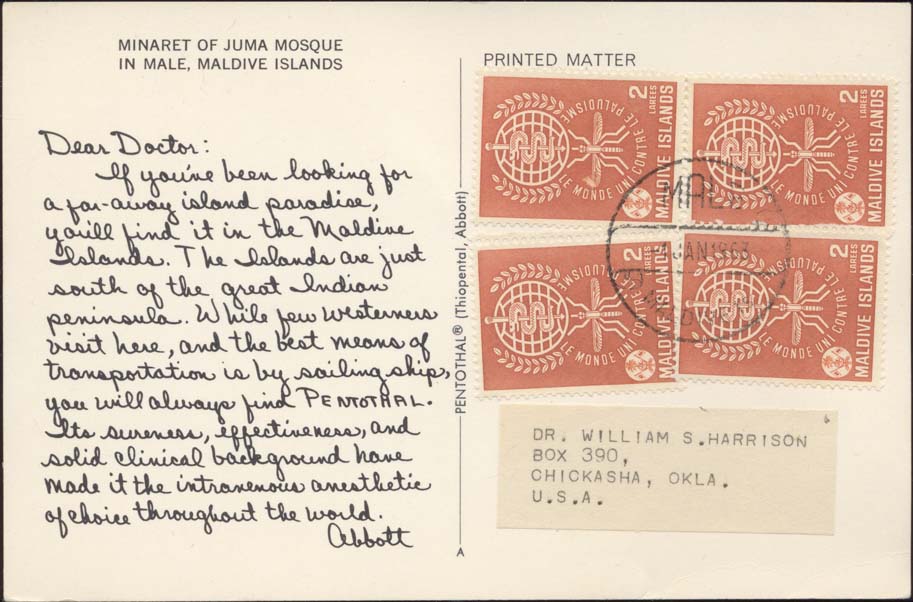 MINARET OF JUMA MOSQUE
IN MALE, MALDIVE ISLANDS
Dear Doctor:
If you've been looking for
a far-away island paradise,
you'll find it in the Maldive
Islands. The Islands are just
south of the great Indian
peninsula. While few westerners
visit here, and the best means of
transportation is by sailing ship,
you will always find PENTOTHAL.
Its sureness, effectiveness, and
solid clinical background have
made it the intravenous anesthetic
of choice throughout the world.
Abbott
PENTOTHAL® (Thiopental, Abbott)
A
PRINTED MATTER
2
LAREES
MALDIVE ISLANDS
LE MONDE UNI CONTRE LE PALUDISME
2
LAREES
MALDIVE ISLANDS
LE MONDE UNI CONTRE LE PALUDISME
2
LAREES
MALDIVE ISLANDS
LE MONDE UNI CONTRE LE PALUDISME
2
LAREES
MALDIVE ISLANDS
LE MONDE UNI CONTRE LE PALUDISME
JAN 1963
DR. WILLIAM S.HARRISON
BOX 390,
CHICKASHA, OKLA.
U.S.A.